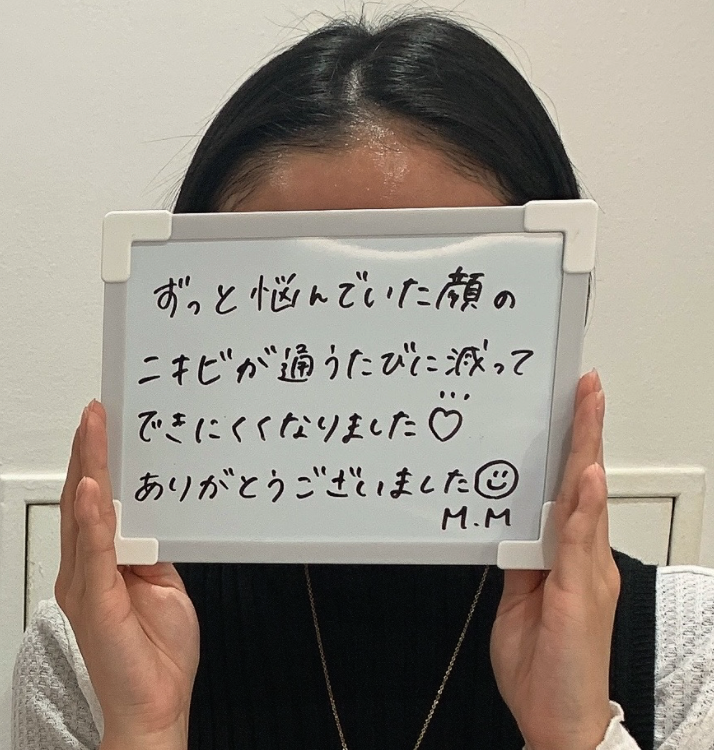 ずっと悩んでいた顔の
ニキビが通うたびに減って
できにくくなりました♡
ありがとうございました☺
M.M